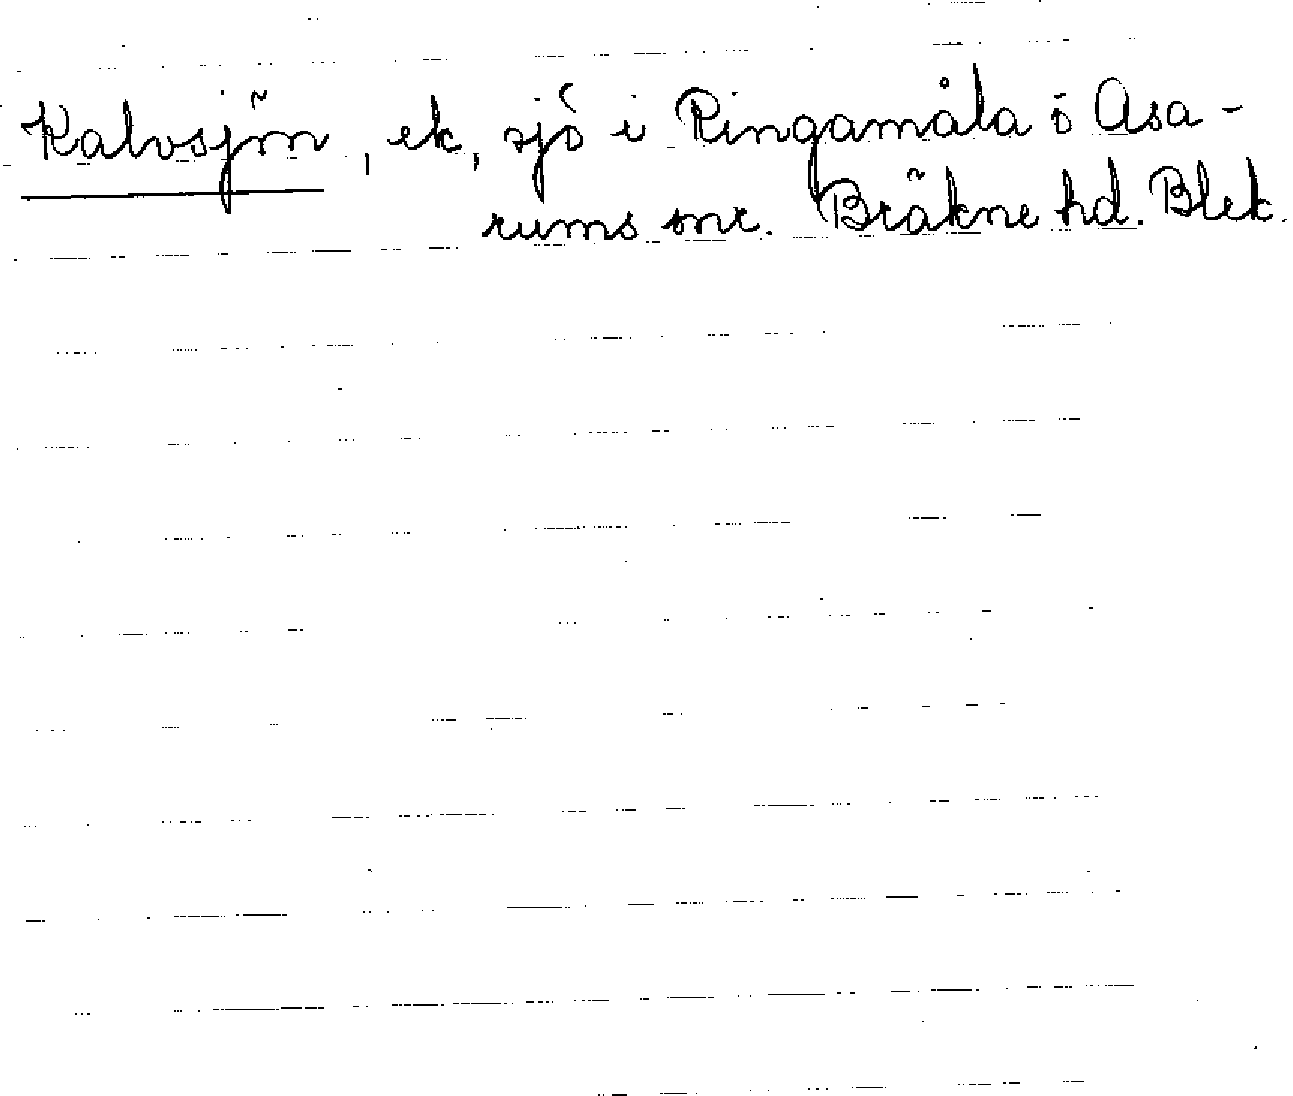 Kalvsjön, ek, sjö i Ringamåla o Asa-
rums snr. Bräkne hd. Blek.